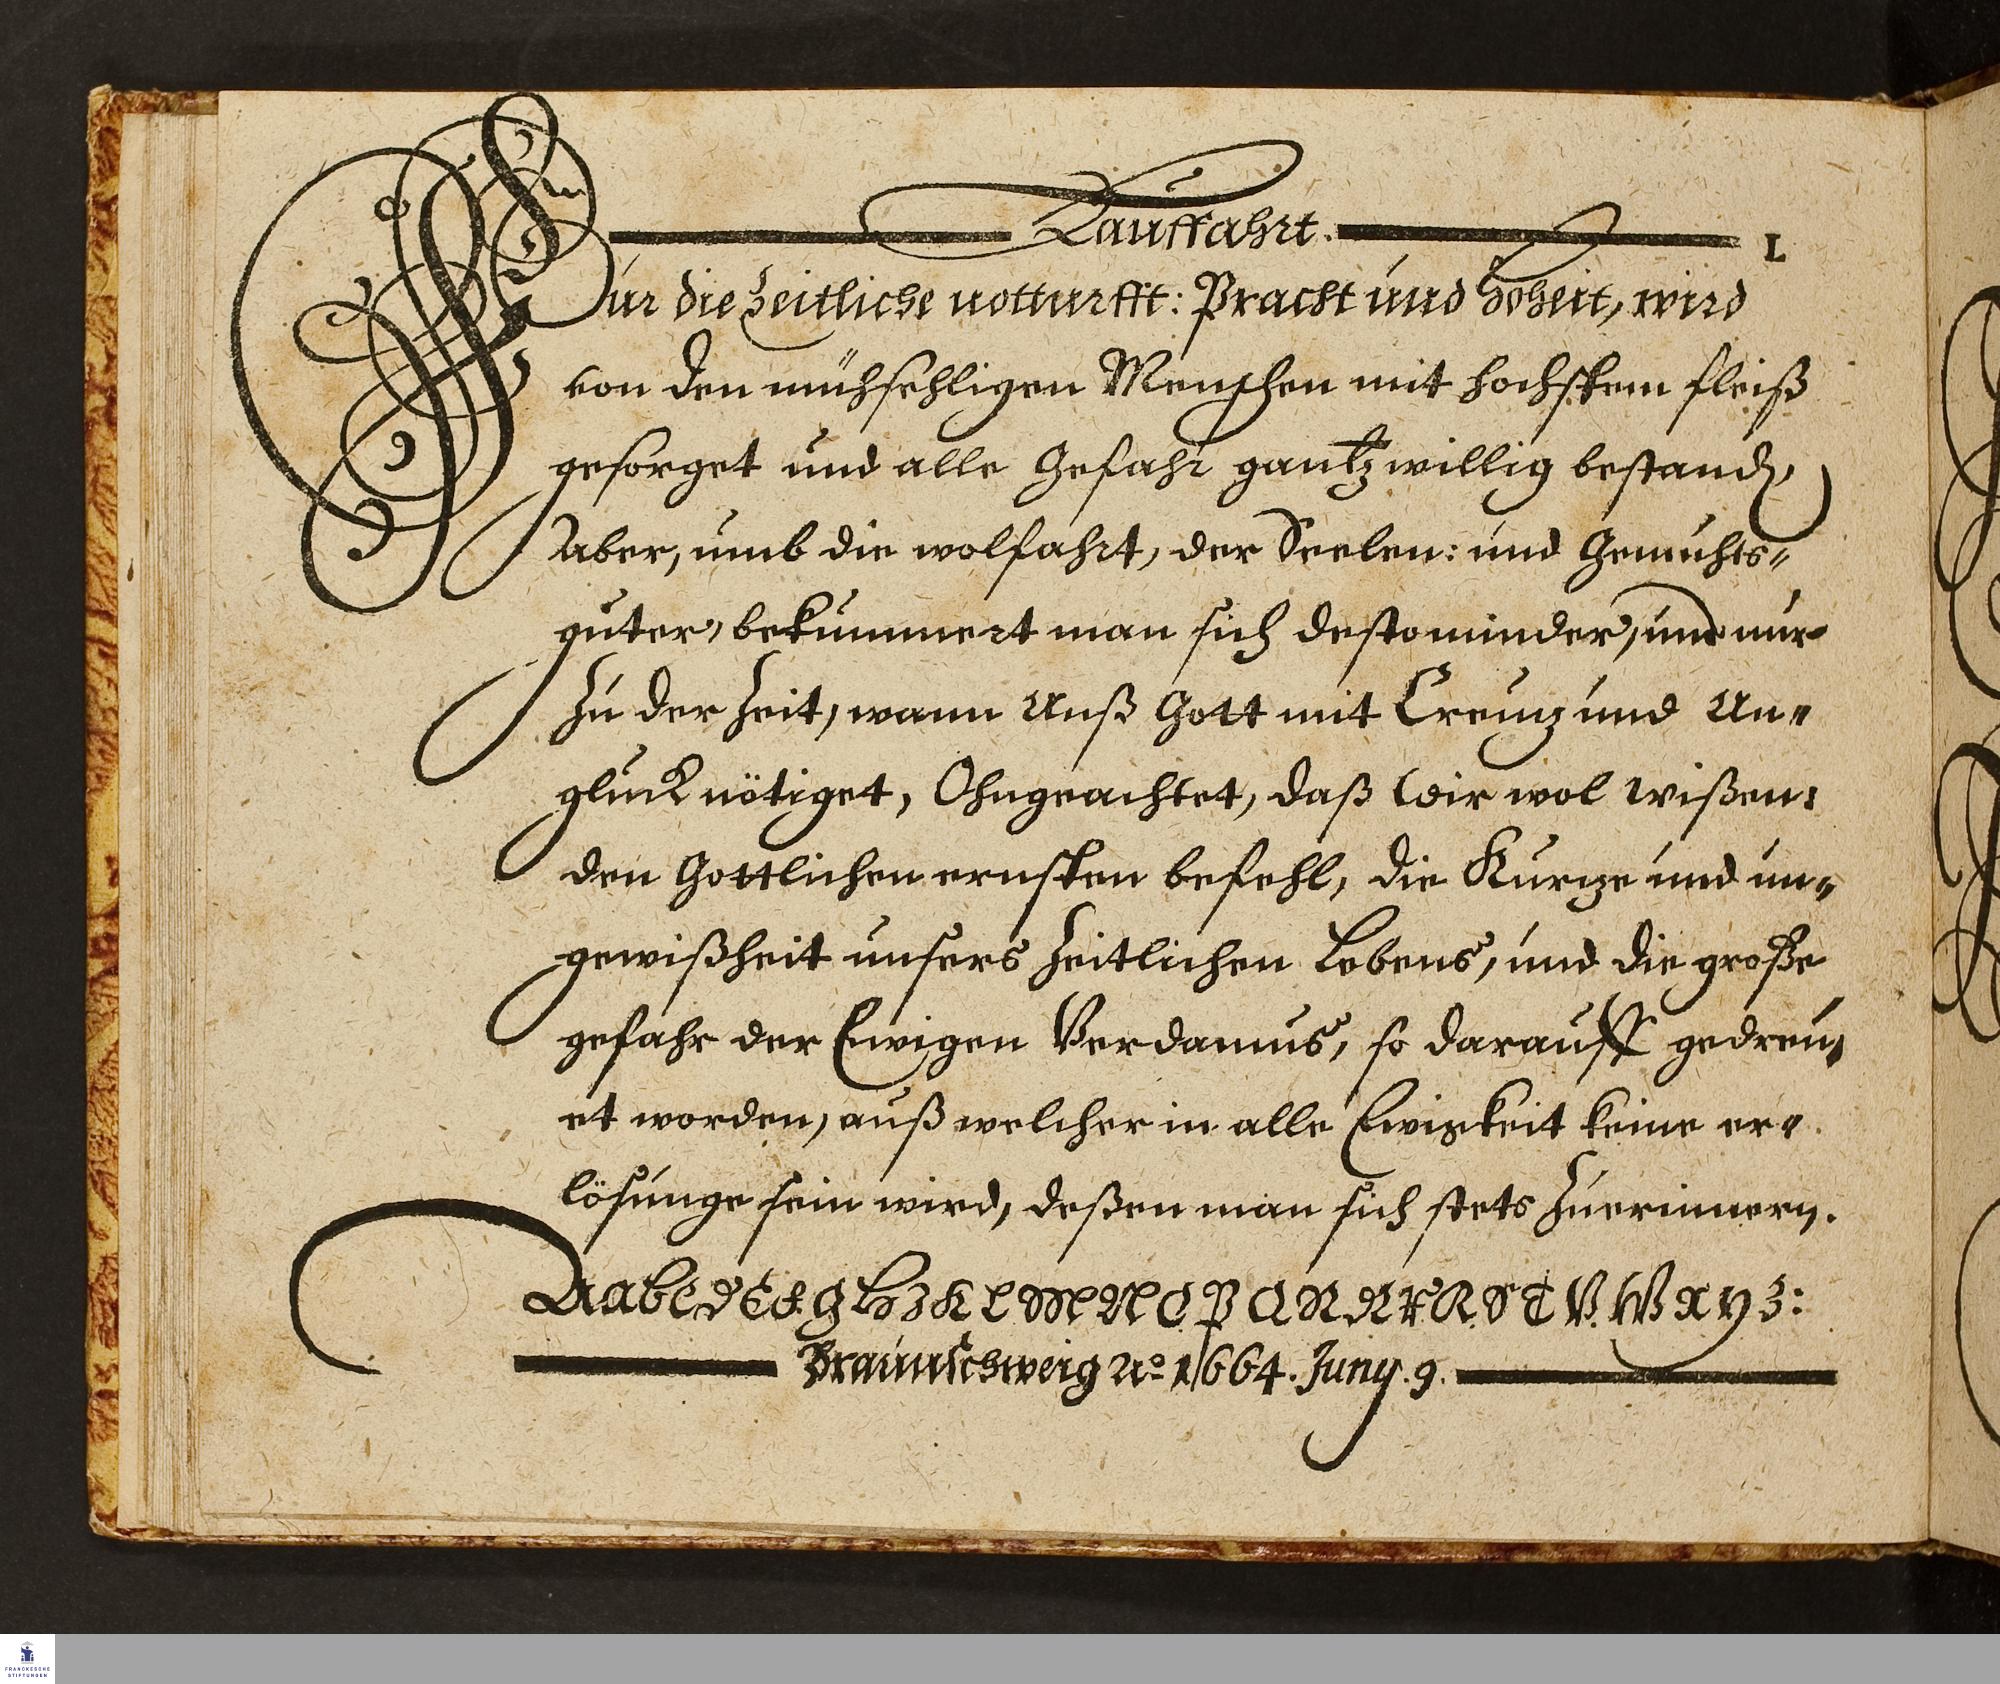 Kauffahrt.
L
Fur die Zeitliche notturfft: Pracht und Hoheit, wird
von den mühsehligen Menschen mit hochstem fleiß
gesorget und alle Gefahr gantz willig bestanden,
Aber, umb die wolfahrt, der Seelen: und Gemuhts„
guter, bekummert man sich destominder, und nur
Zu der Zeit, wann Unß Gott mit Creutz und Un„
gluck nötiget, Ohngeachtet, daß Wir wol wißen:
den Gottlichen ernsten befehl, die Kurtze und un„
gewißheit unsers Zeitlichen Lebens, und die große
gefahr der Ewigen Verdamnus, so darauff gedreu„
et worden, auß welcher in alle Ewigkeit keine er„
lösunge sein wird, deßen man sich stets Zuerinnern.
Braunschweig Ao. 1664. Juny. 9.
FRANCKESCHE
STIFTUNGEN